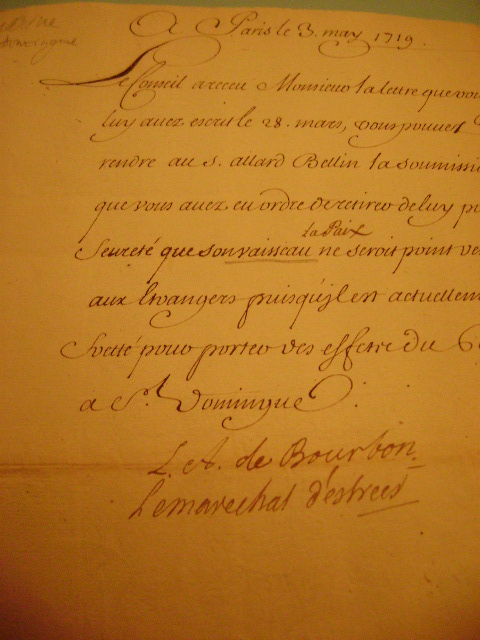 Domingue
A Paris le 3. may 1719.
Le Conseil a receu Monsieur la lettre que vou
luy avez escrit le 28. mars, vous pouvez
rendre au S. allard Bellin la soumissi
que vous avez eu ordre de retirer de luy p
la Paix
Seureté que son vaisseau ne seroit point ve
aux Etrangers puisqu'il est actuellem
fretté pour porter des effets du
a St. Domingue.
L. A. de Bourbon
Le marechal d'estrées